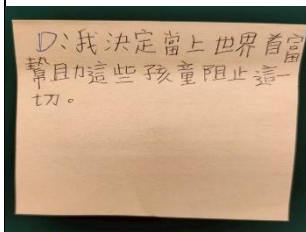 D:我決定當上世界首富
幫助這些孩童阻止這一
切。